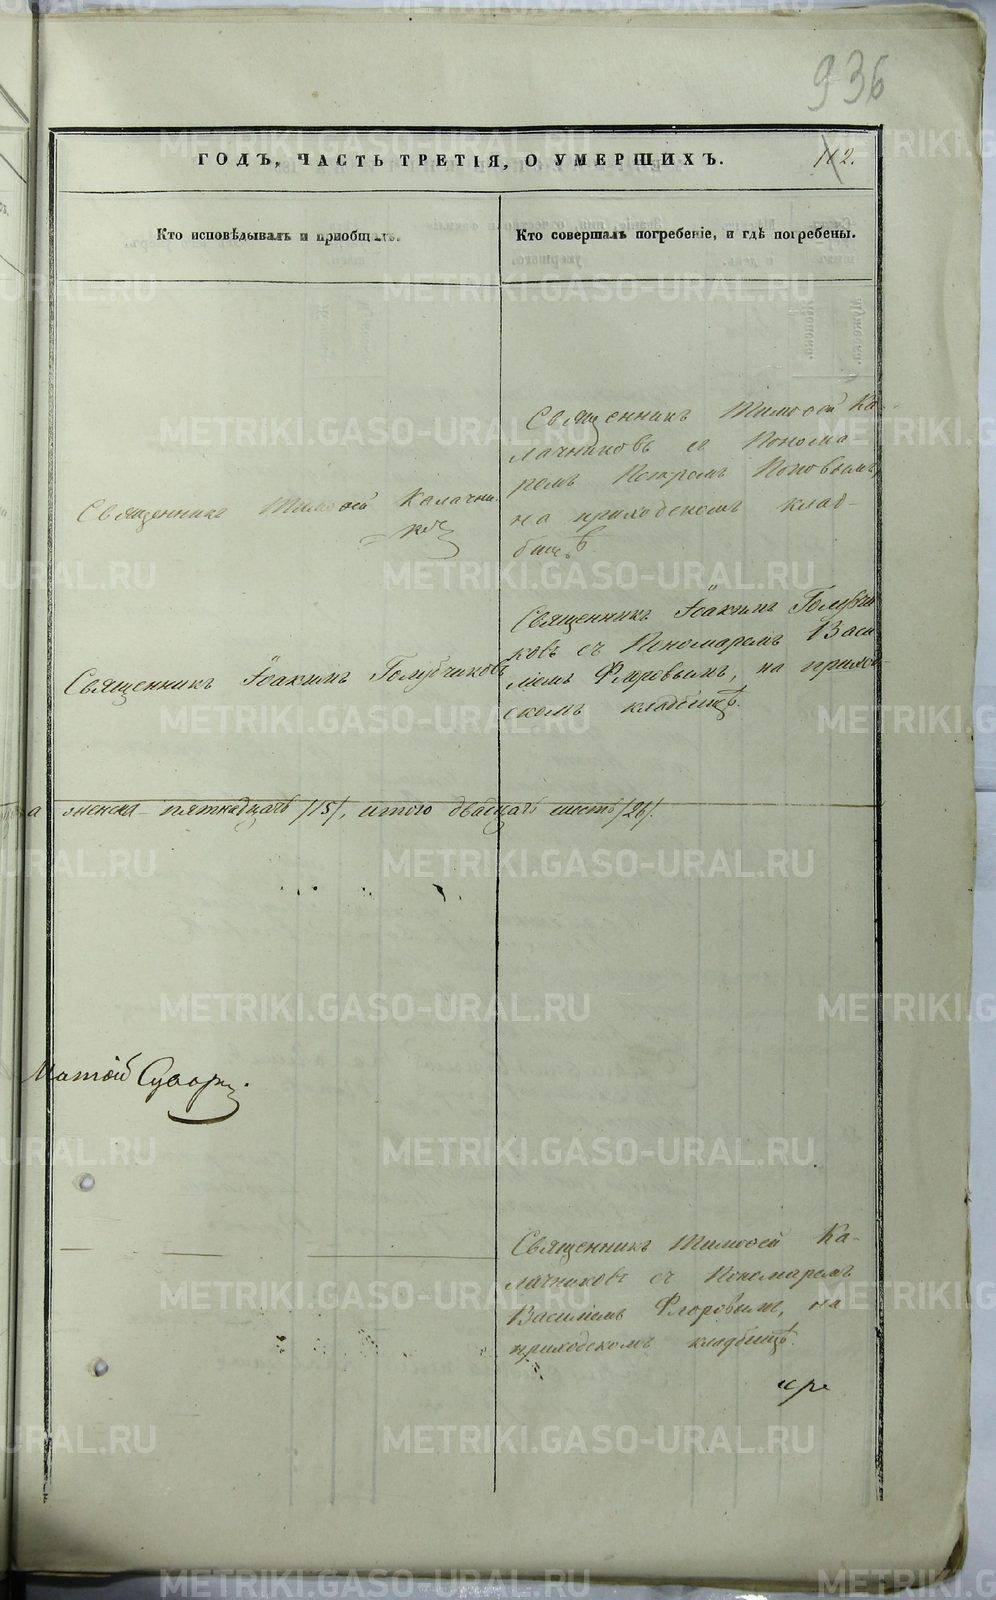 936
ГОДЪ, ЧАСТЬ ТРЕТІЯ, О УМЕРШИХЪ.
112.
Кто исповѣдывалъ и пріобщалъ.
Кто совершалъ погребеніе, и гдѣ погребены.
Священникъ Тимоѳей Калачни-
ковъ
Священникъ Тимоѳей Ка-
лачниковъ съ Понома
ремъ Петромъ Поповымъ,
на приходскомъ клад-
бищѣ.
Священникъ Іоакимъ Голубчиковъ
Священникъ Іоакимъ Голубчи
ковъ съ Пономаремъ Васи
ліемъ Флоровымъ, на приход
скомъ кладбищѣ.
а женска пятнадцать /15/, итого двадцать шесть /26/.
Священникъ Тимоѳей Ка-
лачниковъ съ Пономаремъ
Василіемъ Флоровымъ, на
приходскомъ кладбищѣ.
METRIKI.GASO-URAL.RU